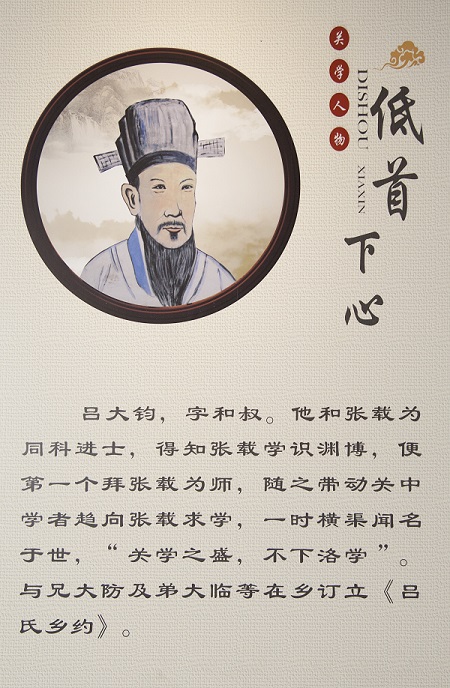 关学人物
低首下心
DISHOU XIAXIN
吕大钧，字和叔。他和张载为
同科进士，得知张载学识渊博，便
第一个拜张载为师，随之带动关中
学者趋向张载求学，一时横渠闻名
于世，“关学之盛，不下洛学”。
与兄大防及弟大临等在乡订立《吕
氏乡约》。